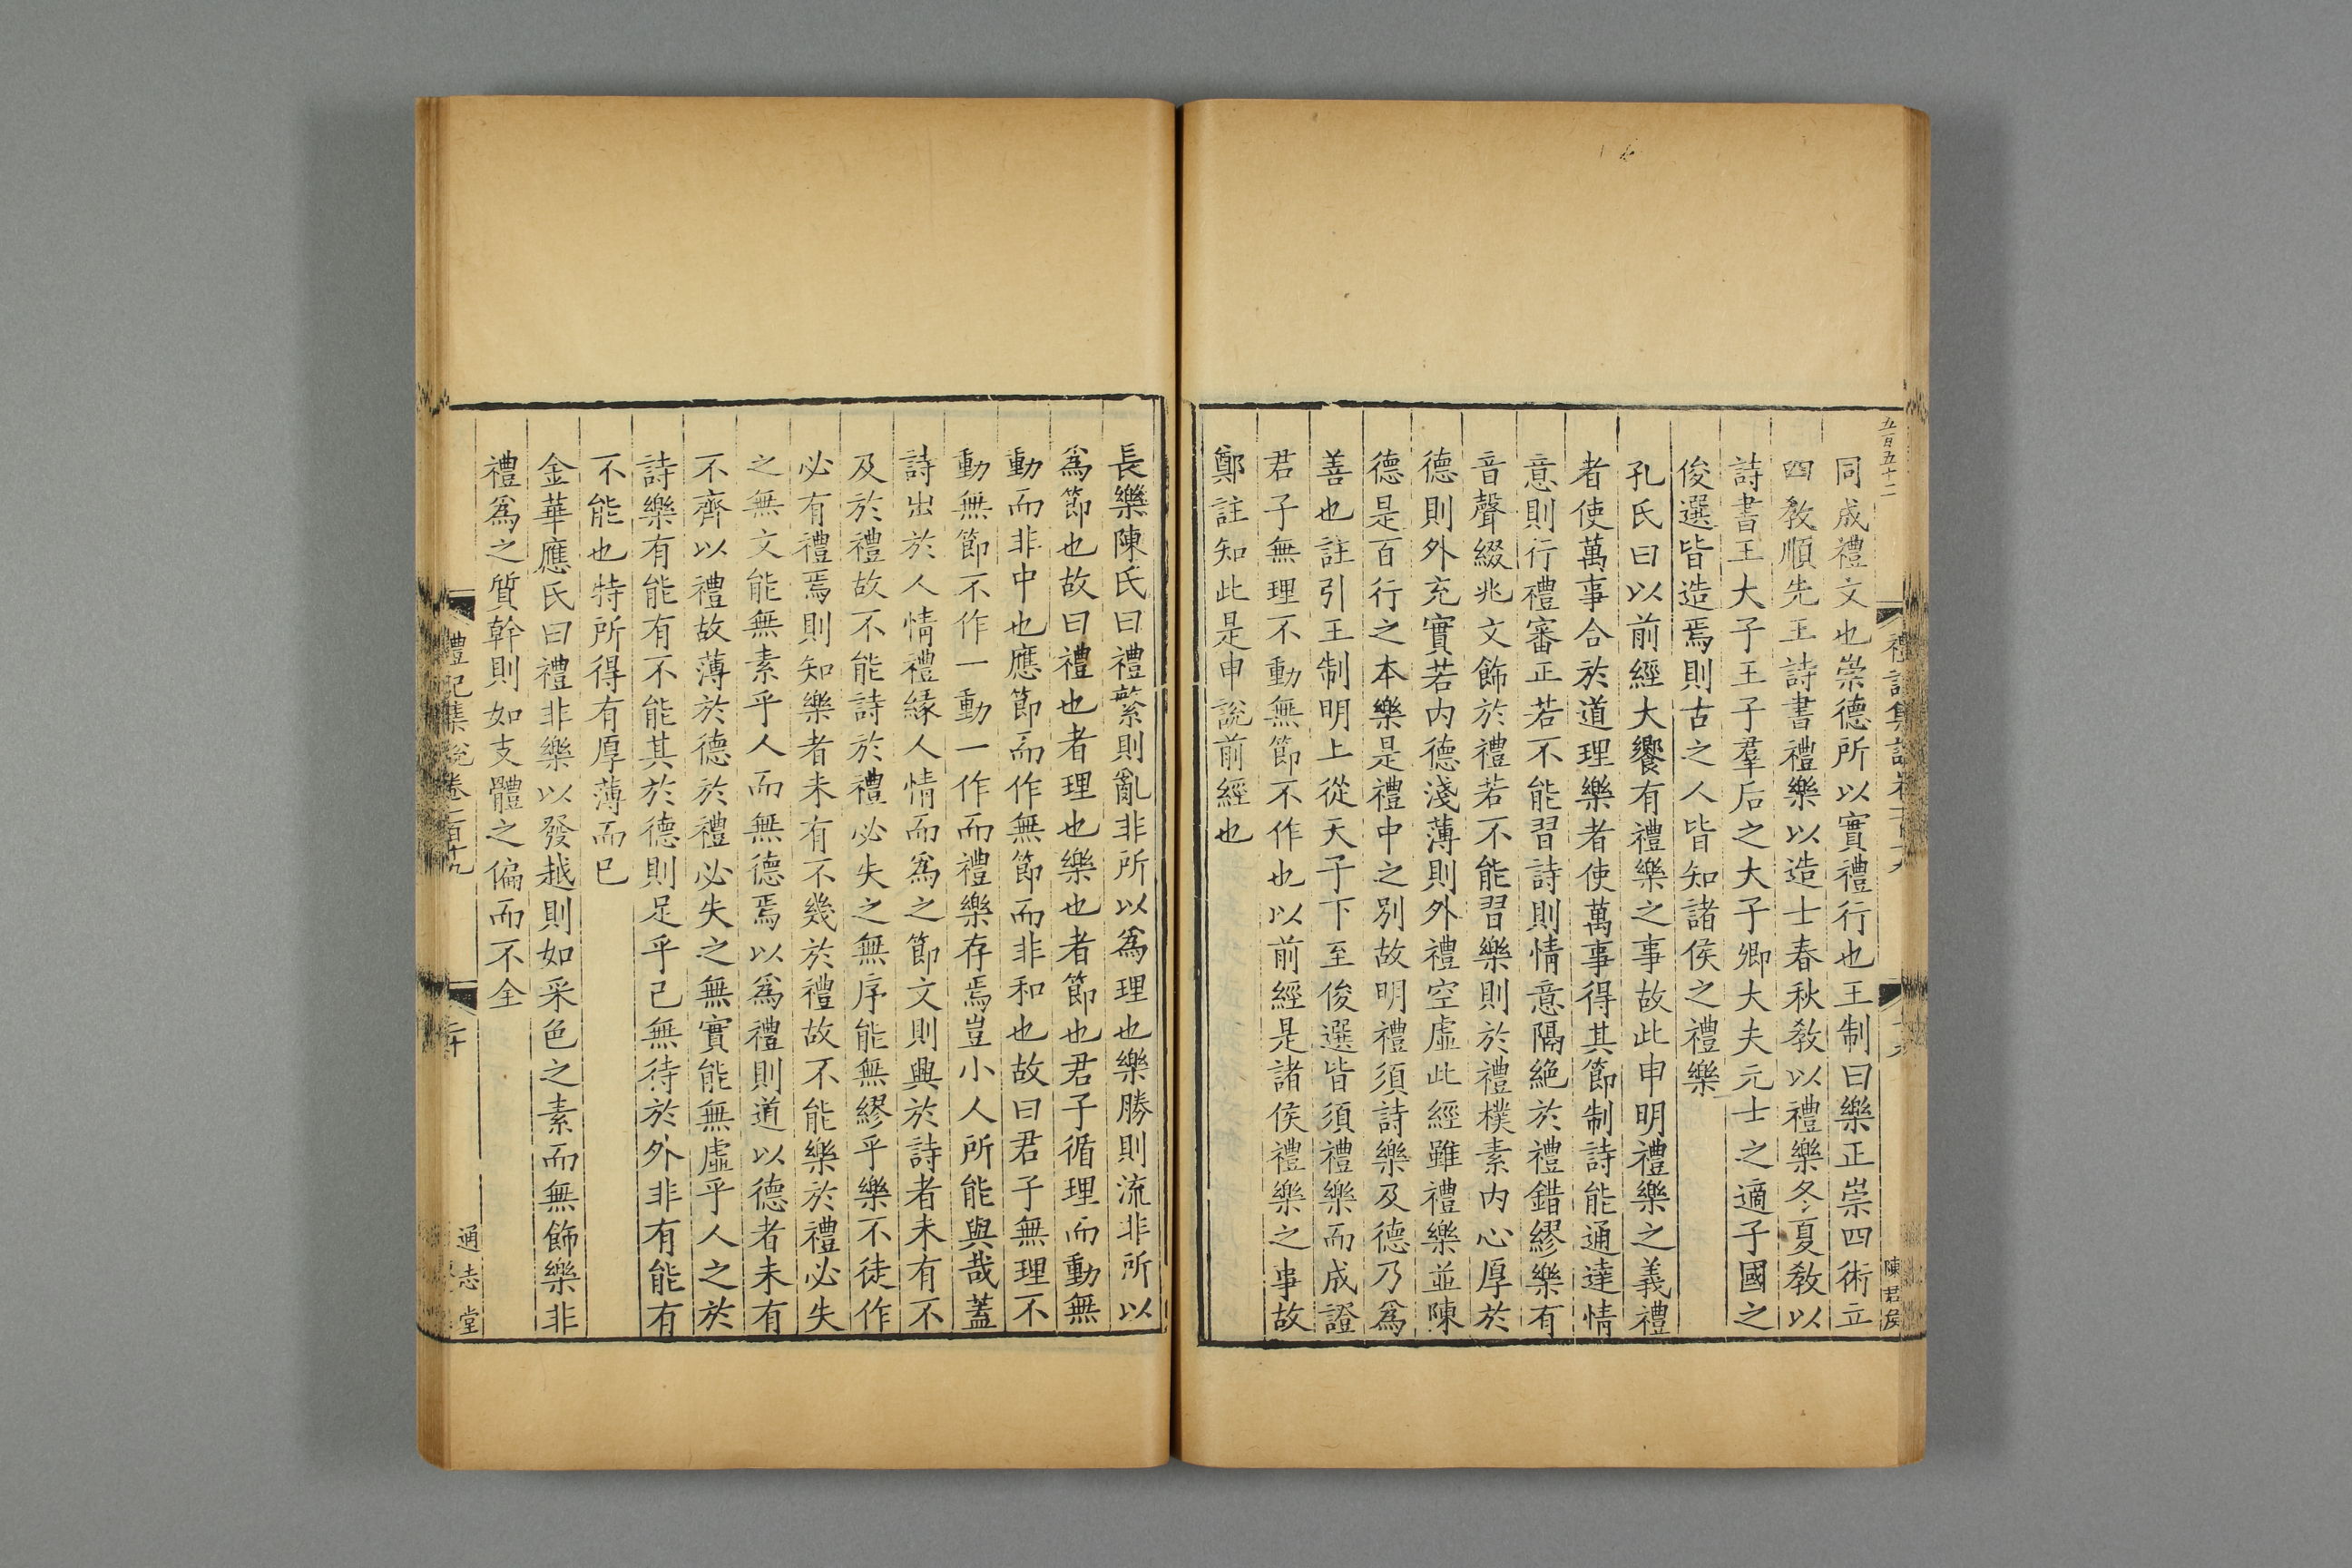 五百五十二
陳君侯
同成禮文也崇德所以實禮行也王制曰樂正崇四術立
四敎順先王詩書禮樂以造士春秋敎以禮樂冬夏敎以
詩書王大子王子羣后之大子卿大夫元士之適子國之
俊選皆造焉則古之人皆知諸侯之禮樂
孔氏曰以前經大饗有禮樂之事故此申明禮樂之義禮
者使萬事合於道理樂者使萬事得其節制詩能通達情
意則行禮審正若不能習詩則情意隔絶於禮錯繆樂有
音聲綴兆文飾於禮若不能習樂則於禮樸素内心厚於
德則外充實若内德淺薄則外禮空虛此經雖禮樂並陳
德是百行之本樂是禮中之別故明禮須詩樂及德乃爲
善也註引王制明上從天子下至俊選皆須禮樂而成證
君子無理不動無節不作也以前經是諸侯禮樂之事故
鄭註知此是申說前經也
長樂陳氏曰禮繁則亂非所以爲理也樂勝則流非所以
爲節也故曰禮也者理也樂也者節也君子循理而動無
動而非中也應節而作無節而非和也故曰君子無理不
動無節不作一動一作而禮樂存焉豈小人所能與哉蓋
詩出於人情禮緣人情而爲之節文則興於詩者未有不
及於禮故不能詩於禮必失之無序能無繆乎樂不徒作
必有禮焉則知樂者未有不幾於禮故不能樂於禮必失
之無文能無素乎人而無德焉以爲禮則道以德者未有
不齊以禮故薄於德於禮必失之無實能無虛乎人之於
詩樂有能有不能其於德則足乎己無待於外非有能有
不能也特所得有厚薄而巳
金華應氏曰禮非樂以發越則如采色之素而無飾樂非
禮爲之質幹則如支體之偏而不全
禮記集說卷一百十九
二十
通志堂